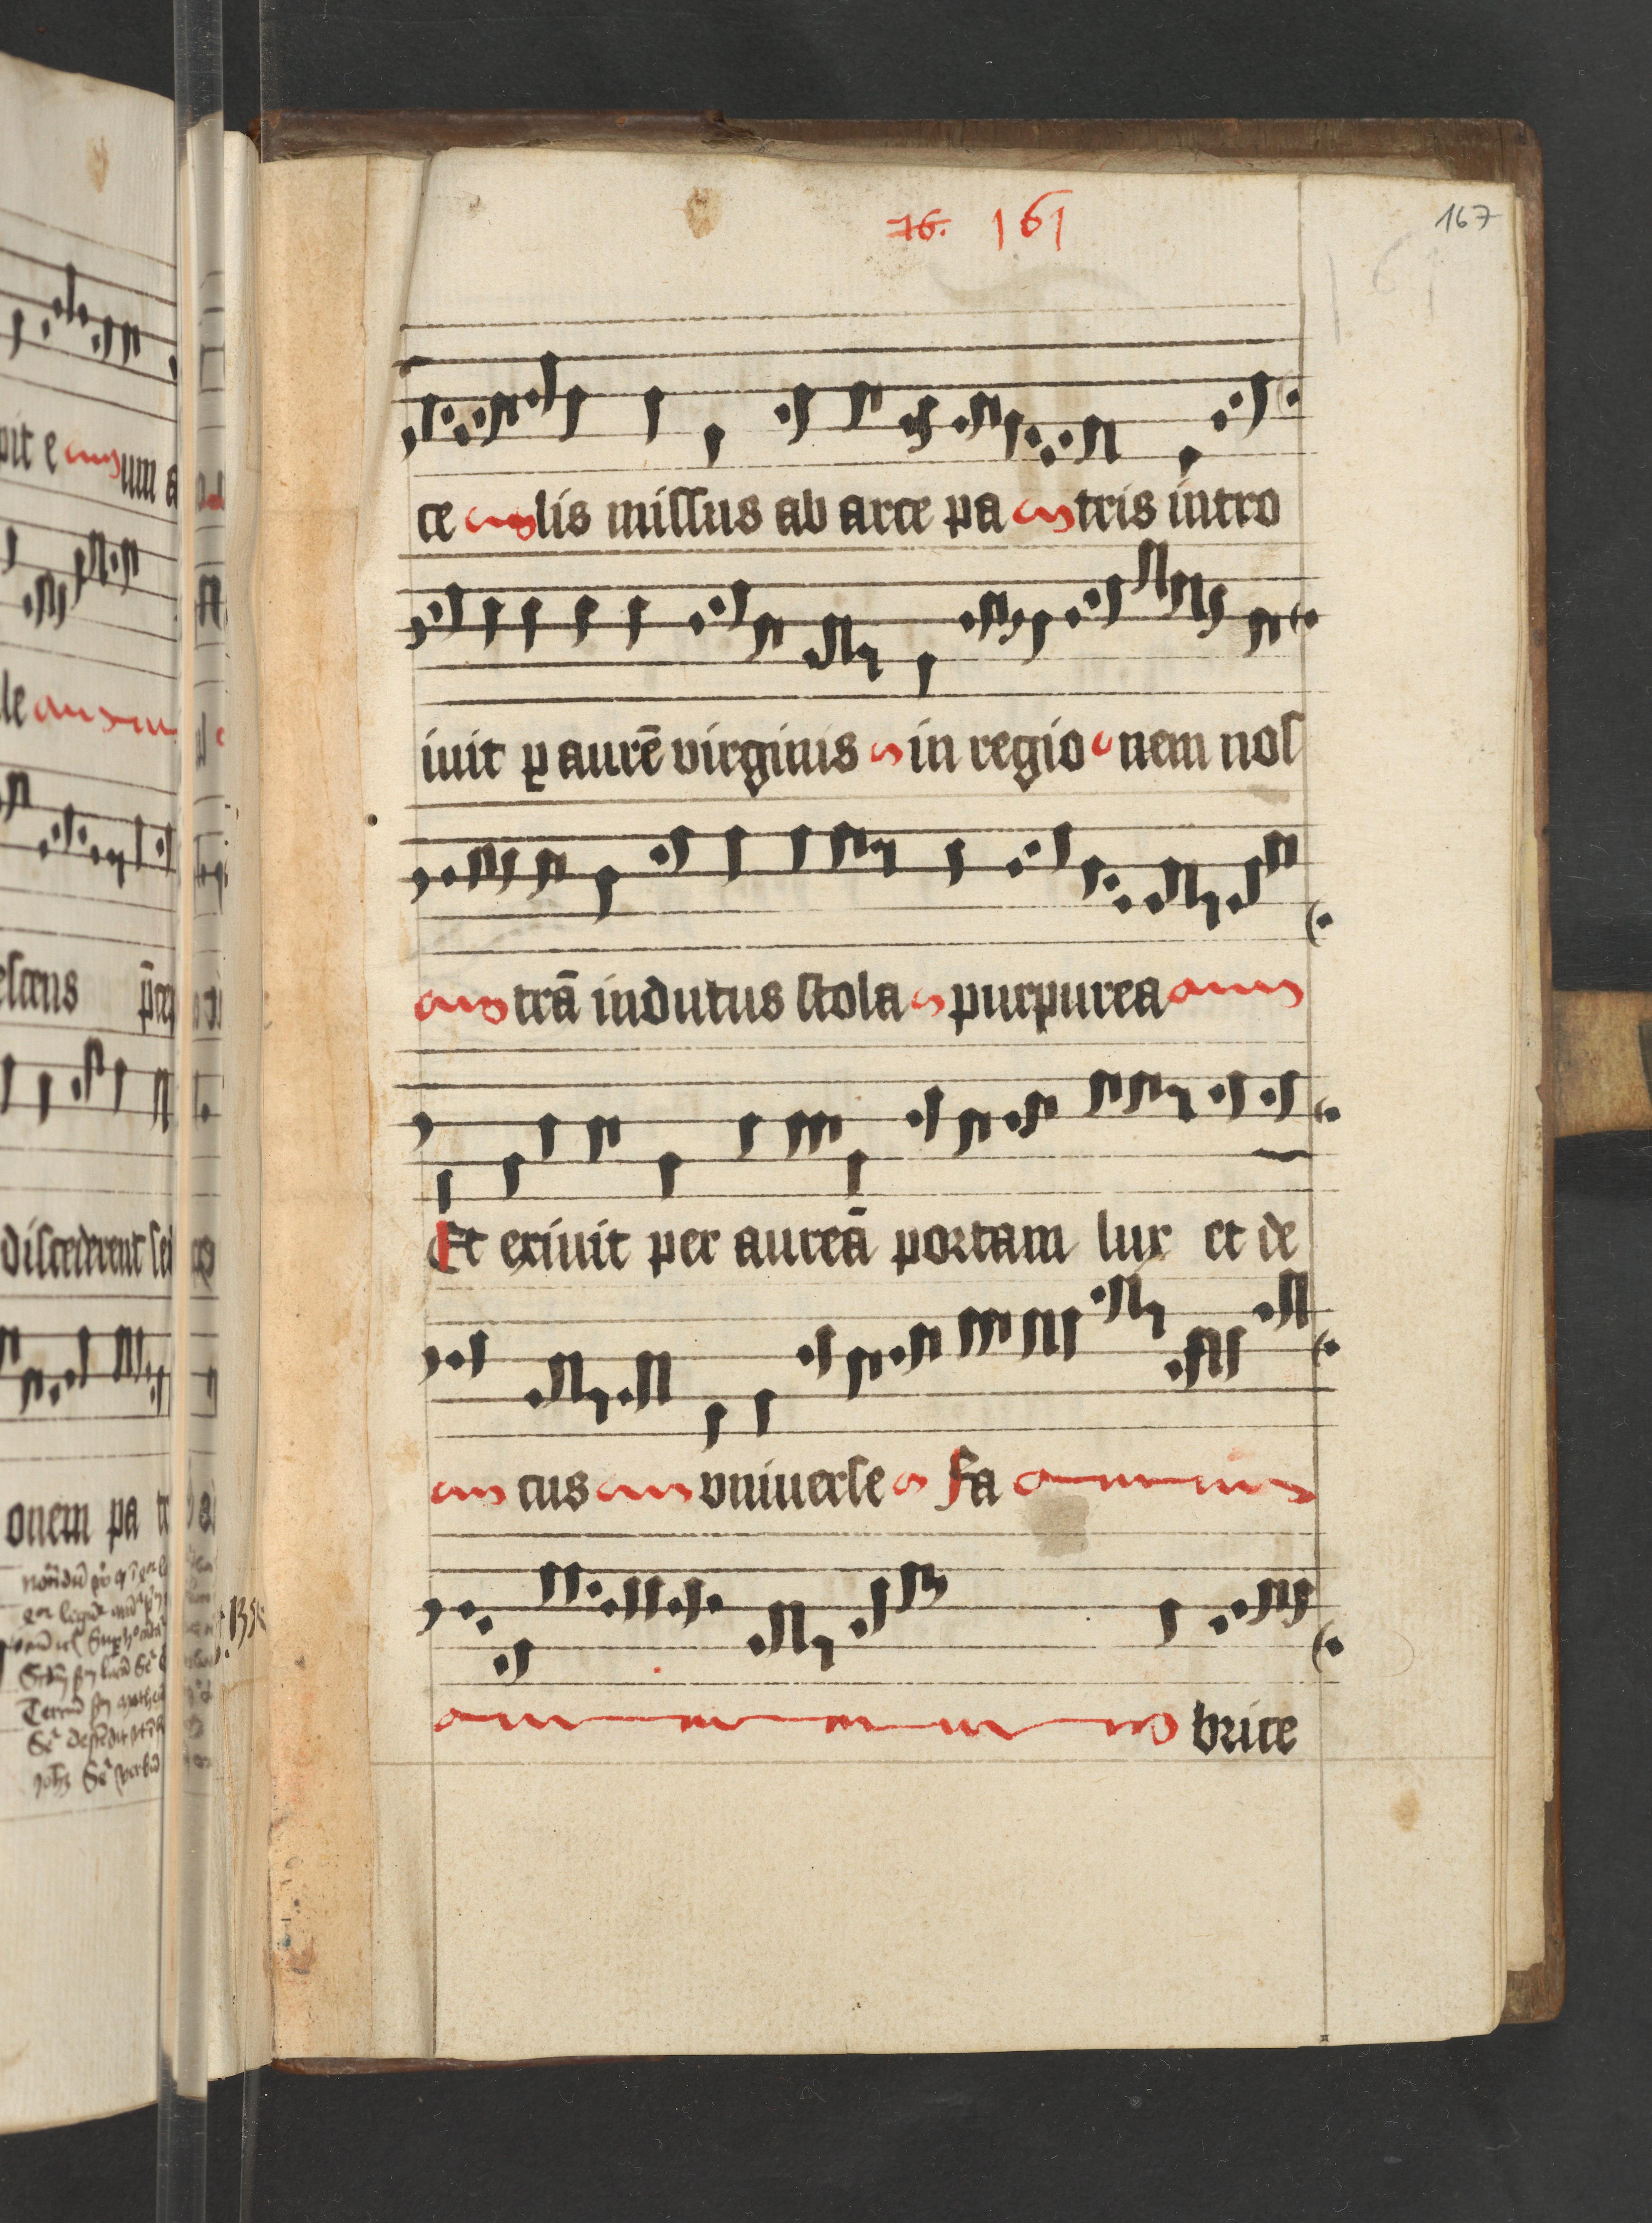 76. 161
167
161
ce lis missus ab arce pa tris intro
iuit ꝑ aurē virginis in regio nem nos
trā indutus stola purpurea
Et exiuit per aureā portam lux et de
cus vniuerse fa
brice
pit e um a
le
escens
discederent sei
onem pa tr